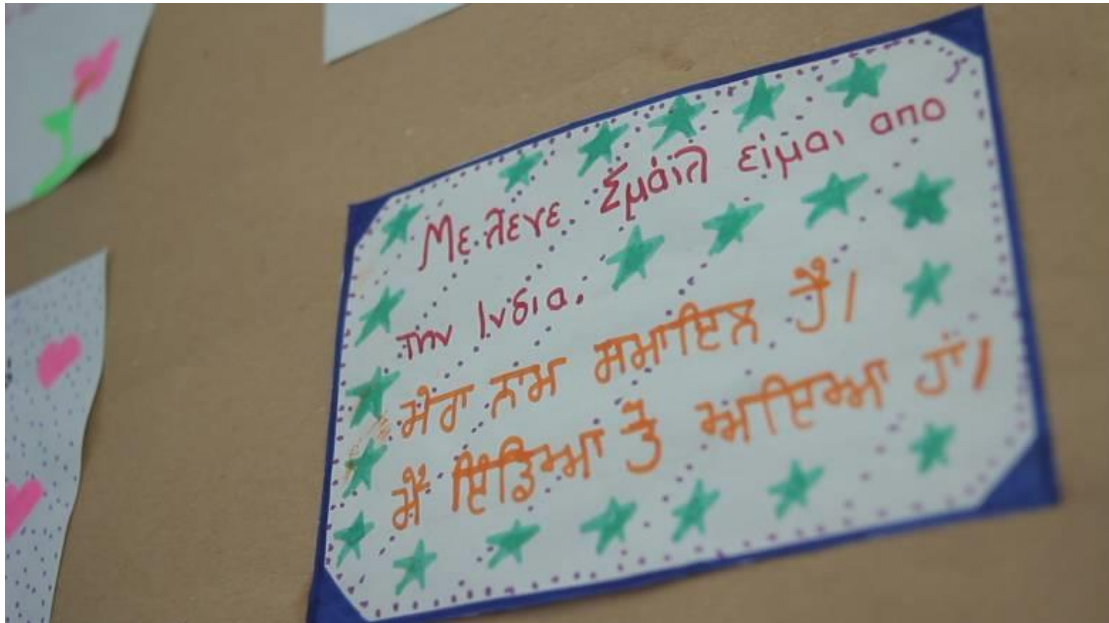 Με λενε Σμάιλ είμαι απο
την Ινδια.
ਮੇਰਾ ਨਾਮ ਸਮਾਇਲ ਹੈ।
ਮੈਂ ਇੰਡਿਆ ਤੋਂ ਆਇਆ ਹਾਂ।